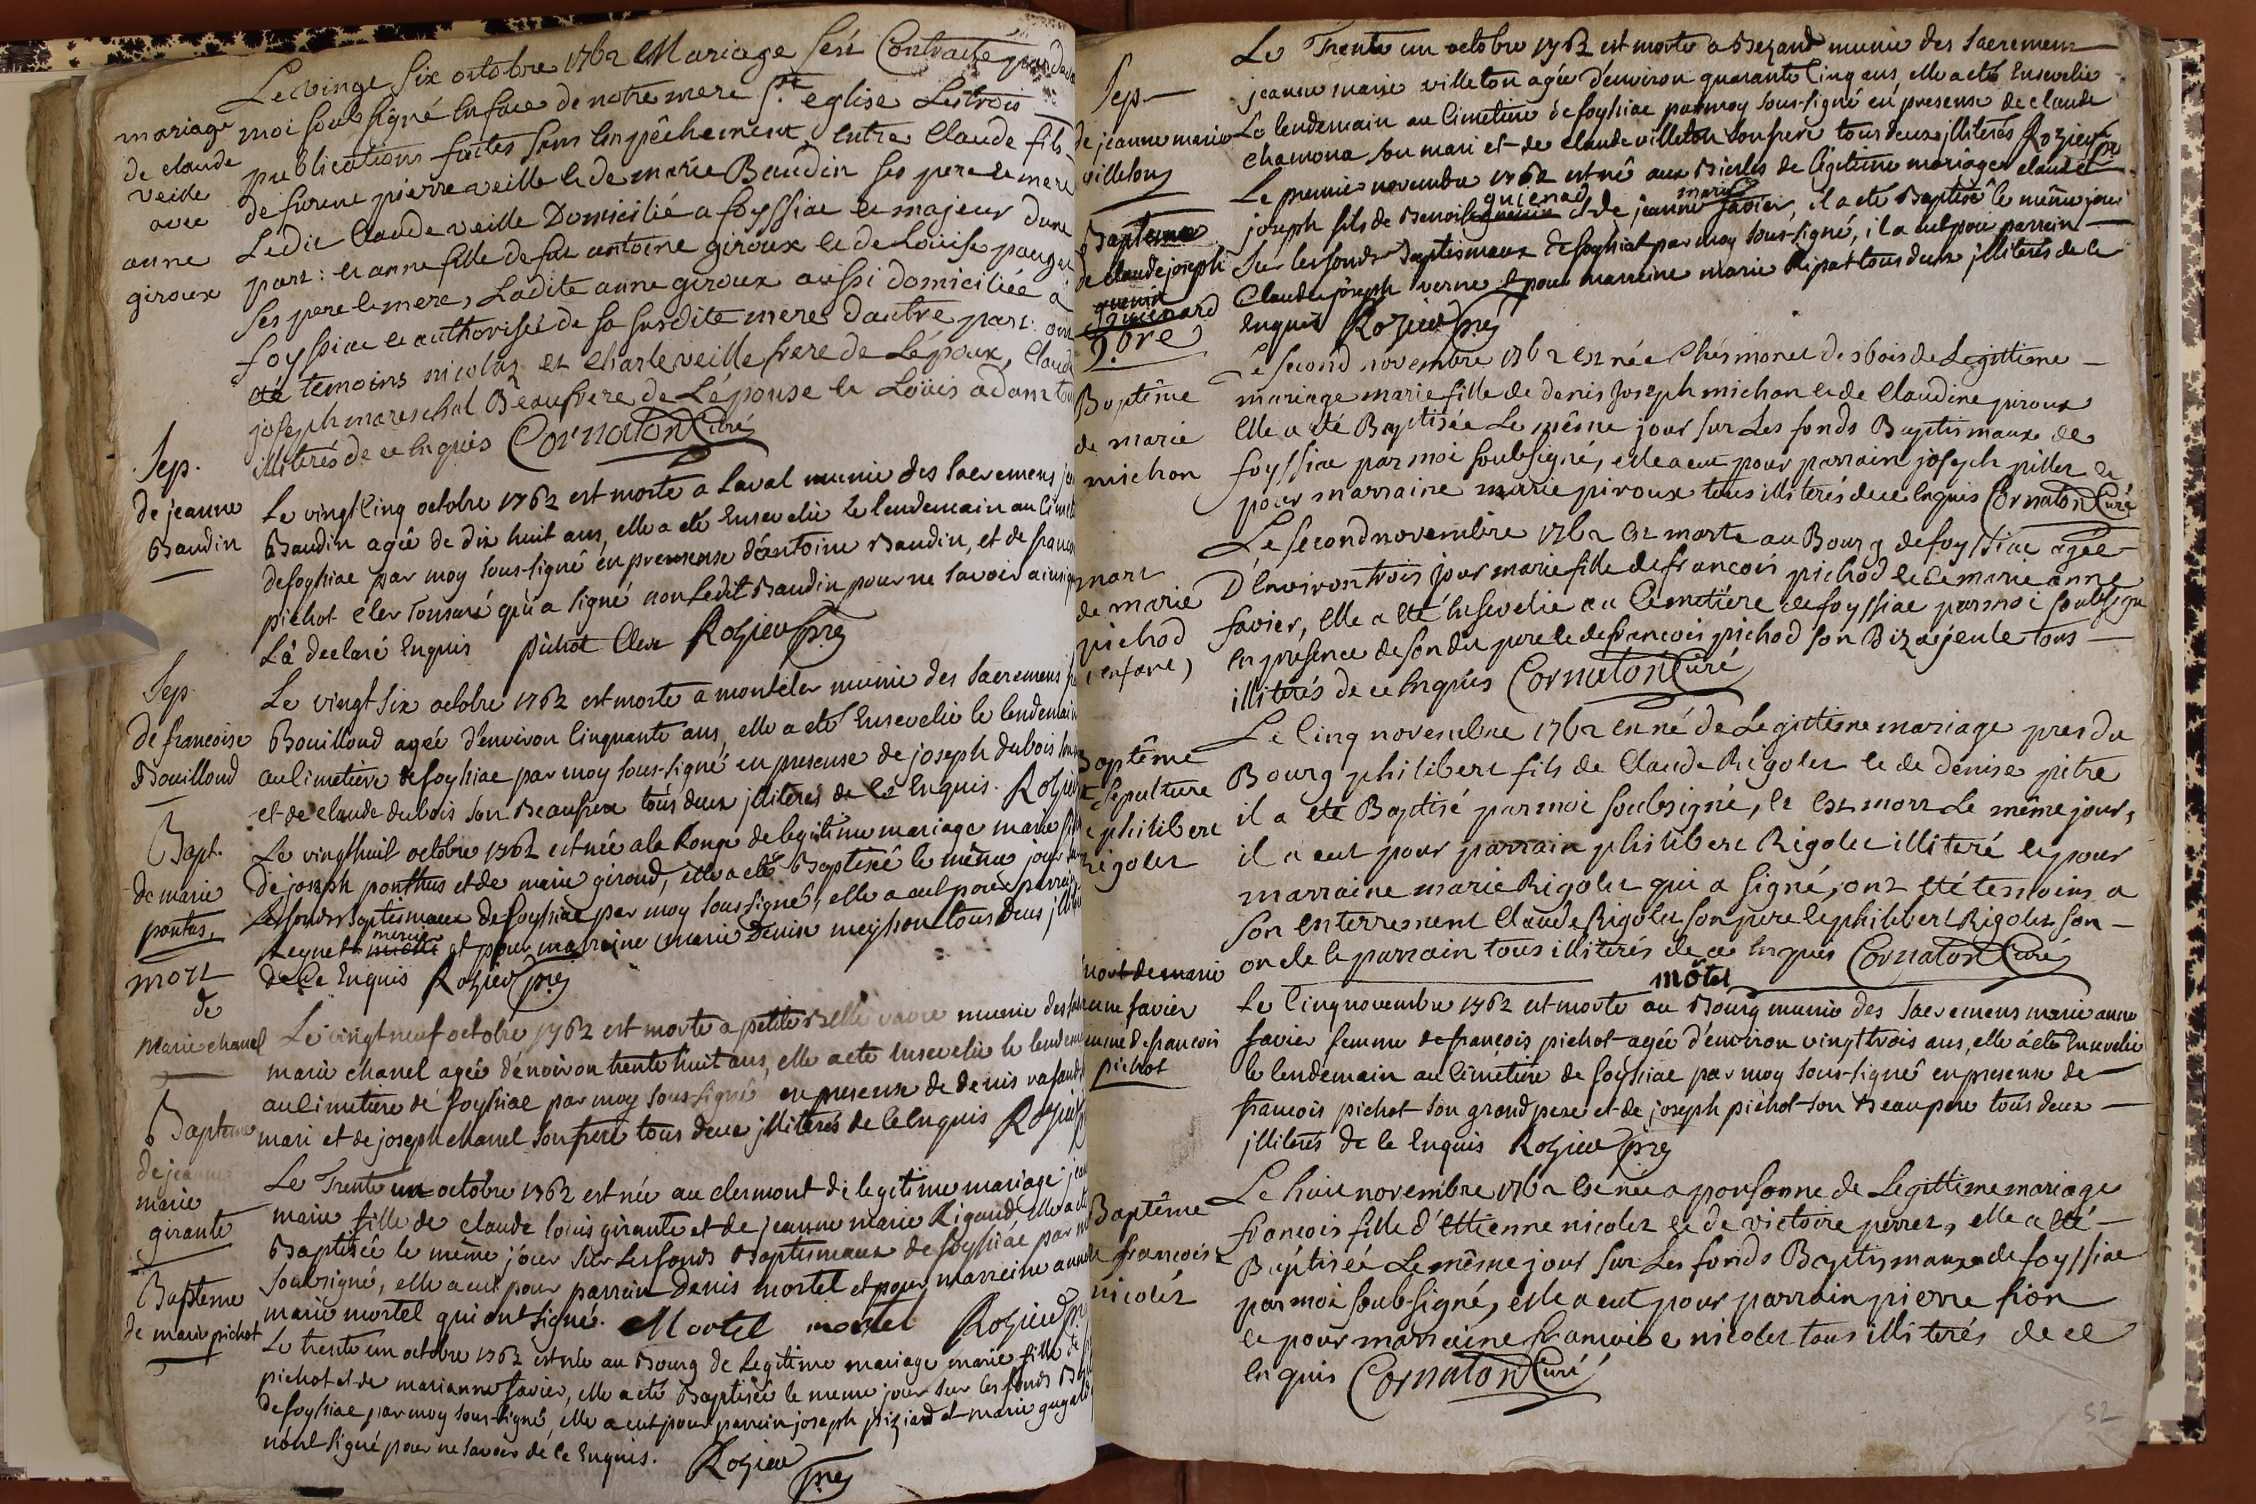 mariage
de claude
veille
avec
anne
giroux
Le vingt six octobre 1762 Mariage fest Contracté
moi soub signé en face de notre mere Ste eglise Les trois
publications faites sans empêchement, entre Claude fils
de furent pierre veille et de marie Baudin ses pere et mere
Ledit Claude veille Domicilié a foyssiac et majeur dune
part: et anne fille de fut antoine giroux et de Loüise
ses pere et mere, Ladite anne giroux aussi domiciliée a
foyssiac et authorisée de sa susdite mere dautre part: ont
eté temoins nicolas et Charle veille frere de Lépoux, Claude
joseph mareschal Beaufrere de Lépouse et Loüis adam
illiterés de ce enquis Cornaton Curé
Sep.
de jeanne
Baudin
Le vingt Cinq octobre 1762 est morte a Laval munie des sacremens
Baudin agée de dix huit ans, elle a eté Ensevelie le lendemain au
de foyssiac par moy sous-signé en presense d'antoine Baudin, et de
pichot Cler Tonsuré qui a signé non ledit Baudin pour ne savoir ainsi
La declaré Enquis pichot Cler Rozier pre
Sep
de francoise
Bouilloud
Le vingt six octobre 1762 est morte a montcler munie des sacremens
Bouilloud agée d'environ Cinquante ans, elle a eté Ensevelie le lendemain
au Cimetiere de foyssiac par moy sous-signé en presense de joseph dubois
et de claude dubois son Beaufrere tous deux jlliteres de Ce Enquis. Rozier
Bapt.
de marie
pontus
Le vingt huit octobre 1762 est née a la Ronge de legitime mariage marie
de joseph ponthus et de marie giroud, elle a eté Baptisée le même jour
Les fonds Baptismaux de foyssiac par moy sous-signé, elle a eut pour parrain
et pour marraine marie Denise meysson tous deux
de Ce Enquis Rozier pre
mort
de
Marie chanel
Le vingt neuf octobre 1762 est morte a petite Belle vavre munie des
marie chanel agée dénviron trente huit ans, elle a eté Ensevelie le lendemain
au Cimetiere de foyssiac par moy sous-signé en presense de denis
mari et de joseph chanel son frere tous deux jlliterés de Ce Enquis Rozier
Bapteme
de jeanne
marie
girante
Le Trente un octobre 1762 est née au clermont de legitime mariage
marie fille de claude loüis girante et de jeanne marie Rigaud, elle a eté
Baptisée le même jour sur les fonds Baptismaux de foyssiac par
soubsigné, elle a eut pour parrain Denis mortel et pour marreine anne
marie mortel qui ont signé. Mortel mortel Rozier pre
Bapteme
de marie pichot
Le trente un octobre 1762 est née au Bourg de Legitime mariage marie fille de
pichot et de marianne favier, elle a eté Baptisée le meme jour sur les fonds
de foyssiac par moy sous-signé, elle a eut pour parrein joseph et marie
nônt signé pour ne savoir de Ce Enquis. Rozier pre
Sep
de jeanne marie
villeton
Le Trente un octobre 1762 est morte a Bezand munie des sacremens
jeanne marie villeton agée d'environ quarante Cinq ans, elle a eté Ensevelie
Le lendemain au Cimetiere de foyssiac par moy sous-signé en presense de claude
chamona son mari et de claude villeton son frere tous deux jlliterés Rozier pre
Bapteme
de claude joseph
guienard
9.bre
Le premier novembre 1762 est né aux Bioles de légitime mariage claude
joseph fils de Benoit guienard et de jeanne marie favier, il a eté Baptisé le même jour
sur les fonds Baptismaux de foyssiat par moy sous-signé, il a eut pour parrein
Claude joseph verne et pour marreine marie Ripat tous deux jlliterés de Ce
Enquis Rozier pre
Baptême
de marie
michon
Le second novembre 1762 est née Chés monet des bois de Legittime
mariage marie fille de denis Joseph michon et de Claudine piroux
Elle a eté Baptisée Le même jour sur Les fonds Baptismaux de
foyssiac par moi soubsigné, elle a eut pour parrain joseph piller et
pour marraine marie piroux tous illiterés de ce Enquis Cornaton Curé
mort
de marie
pichod
(enfant)
Le second novembre 1762 est morte au Bourg de foyssiac agée
D'Environ trois jour marie fille de francois pichod et de marie anne
favier, Elle a eté Ensevelie au Cemetiére de foyssiac par moi soubsigné
en presence de son dit pere et de francois pichod son Bizayeule tous
illiterés de ce Enquis Cornaton Curé
Baptême
et Sepulture
de philibert
rigolet
Le Cinq novembre 1762 est né de Legittime mariage pres du
Bourg philibert fils de Claude Rigolet et de denise pitre
il a eté Baptisé par moi soubsigné, et est mort Le même jour,
il a eut pour parrain philibert Rigolet illiteré et pour
marraine marie Rigolet qui a signé, ont eté temoins a
son enterrement Claude Rigolet son pere et philibert Rigolet son
oncle et parrain tous illiterés de ce Enquis Cornaton Curé
mort de marie
anne favier
femme de francois
pichot
Le Cinq novembre 1762 est morte au Bourg munie des sacremens marie anne
favier femme de françois pichot agée d'environ vingt trois ans, elle a eté Ensevelie
le lendemain au Cimetiere de foyssiac par moy sous-signé en presense de
francois pichot son grand pere et de joseph pichot son Beaupere tous deux
jlliterés de Ce Enquis Rozier pre
Baptême
de francoise
nicolet
Le huit novembre 1762 est née a ponsonne de Legittime mariage
francois fille d'Ettienne nicolet et de victoire perret, elle a eté
Baptisée Le même jour sur Les fonds Baptismaux de foyssiac
par moi soub-signé, elle a eut pour parrain pierre fion
et pour marraine francoise nicolet tous illiterés de ce
Enquis Cornaton Curé
52